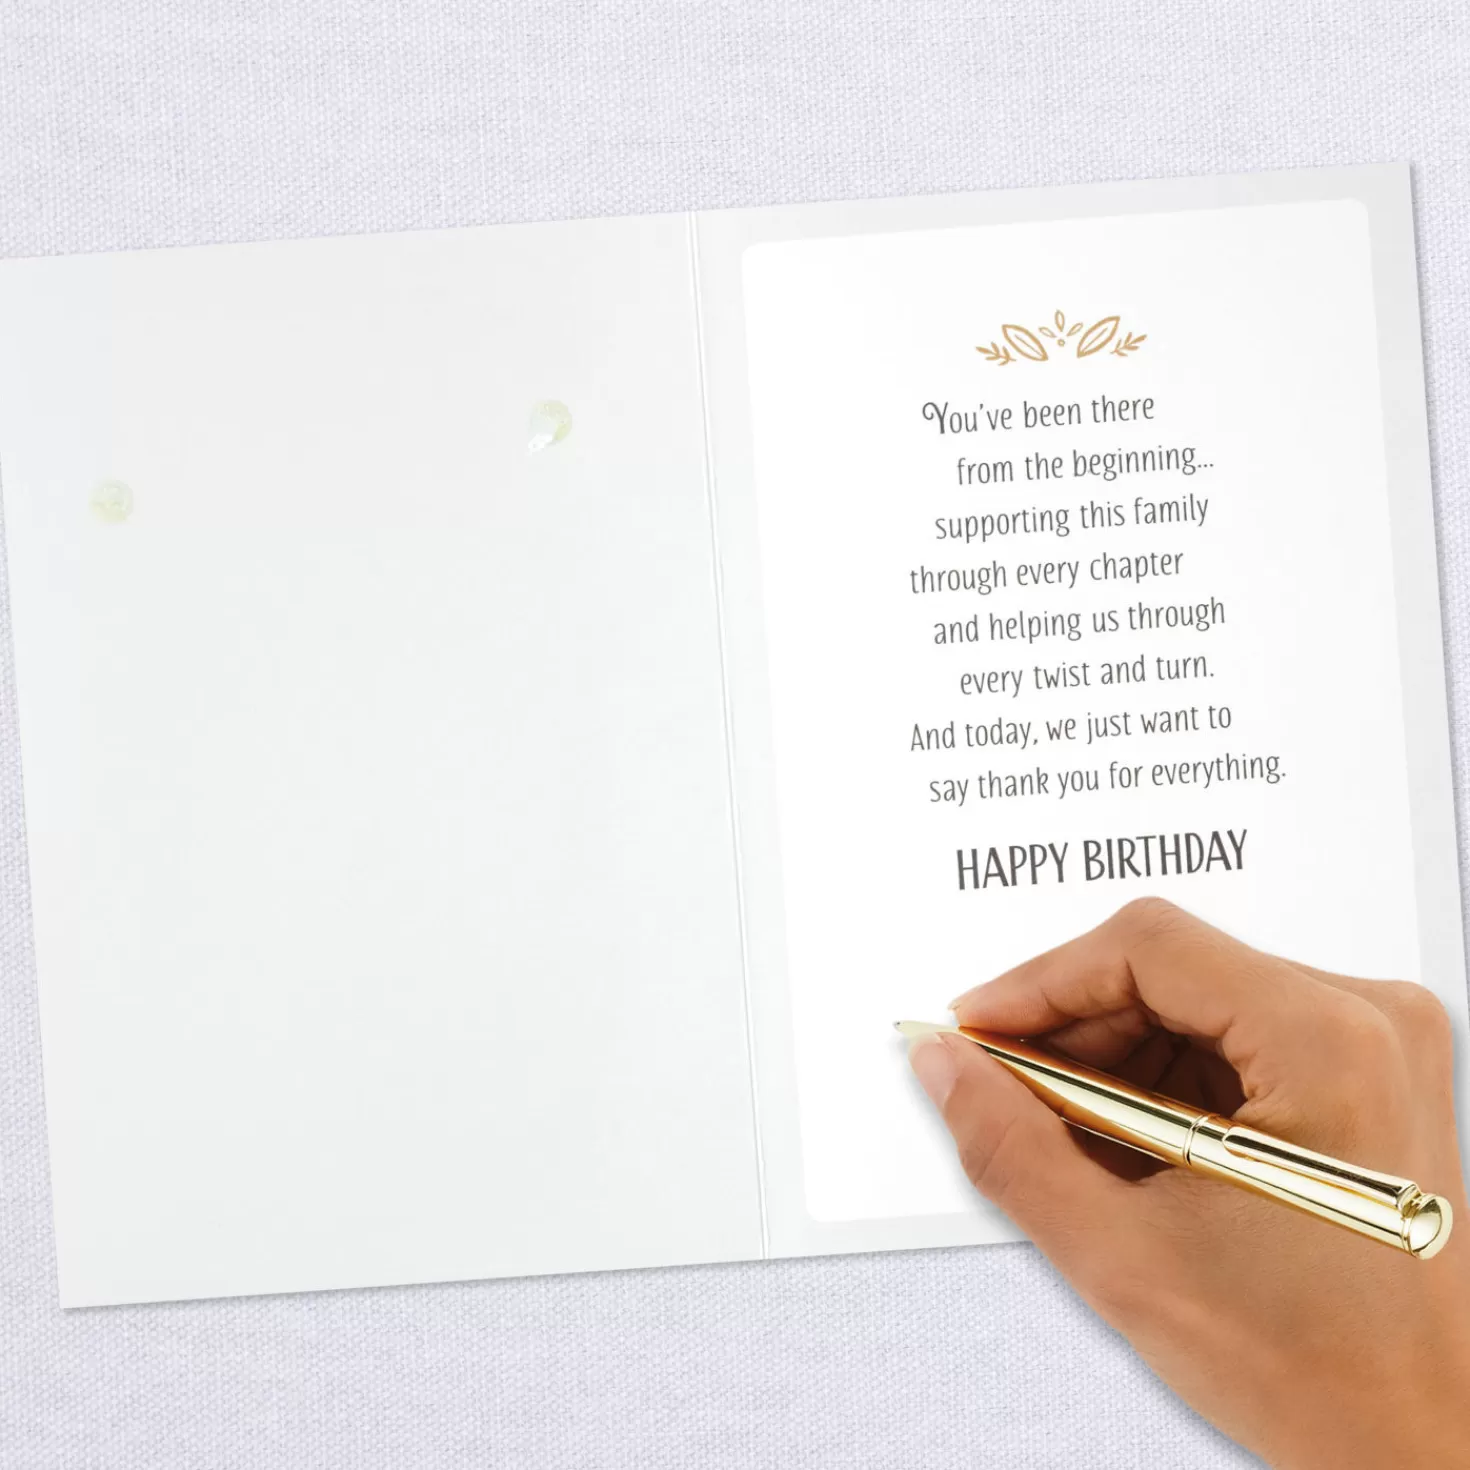 You've been there
from the beginning...
supporting this family
through every chapter
and helping us through
every twist and turn.
And today, we just want to
say thank you for everything.
HAPPY BIRTHDAY